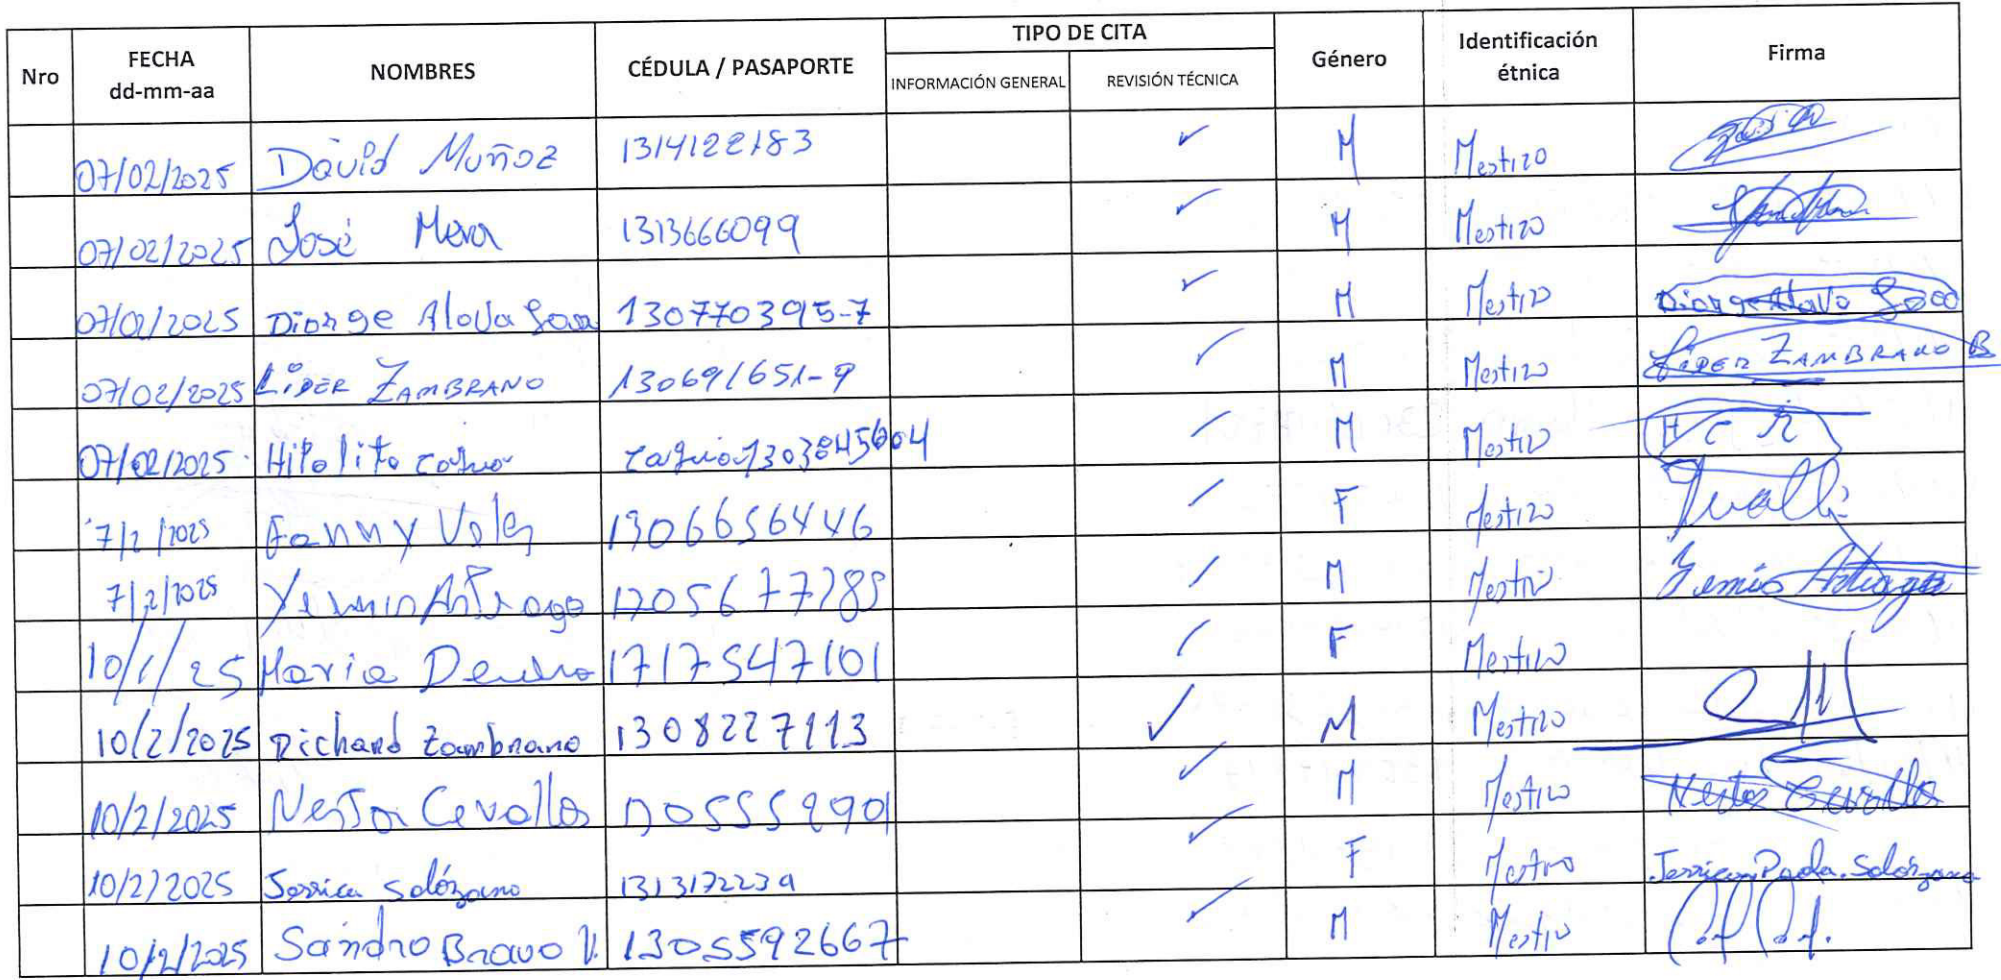 Nro FECHA dd-mm-aa NOMBRES CÉDULA / PASAPORTE TIPO DE CITA INFORMACIÓN GENERAL REVISIÓN TÉCNICA Género Identificación étnica Firma
07/02/2025 David Muñoz 1314122183 ✓ M Mestizo
07/02/2025 José Mera 1313666099 ✓ M Mestizo
07/02/2025 Dionge Alova 130770395-7 ✓ M Mestizo
07/02/2025 LÍDER ZAMBRANO 130691651-9 ✓ M Mestizo LÍDER ZAMBRANO B
07/02/2025 Hipolito 1303845604 M Mestizo HCR
7/2/2025 Fanny Velez 1306656446 F Mestizo
7/2/2025 M Mestizo
10/1/25 Maria 1717547101 F Mestizo
10/2/2025 Richard Zambrano 1308227113 ✓ M Mestizo
10/2/2025 Nestor Cevallos ✓ M Mestizo Nestor Cevallos
10/2/2025 Jessica Solórzano ✓ F Mestizo Jessica Paola Solórzano
10/2/2025 Sandro Bravo V. 1305592667 ✓ M Mestizo